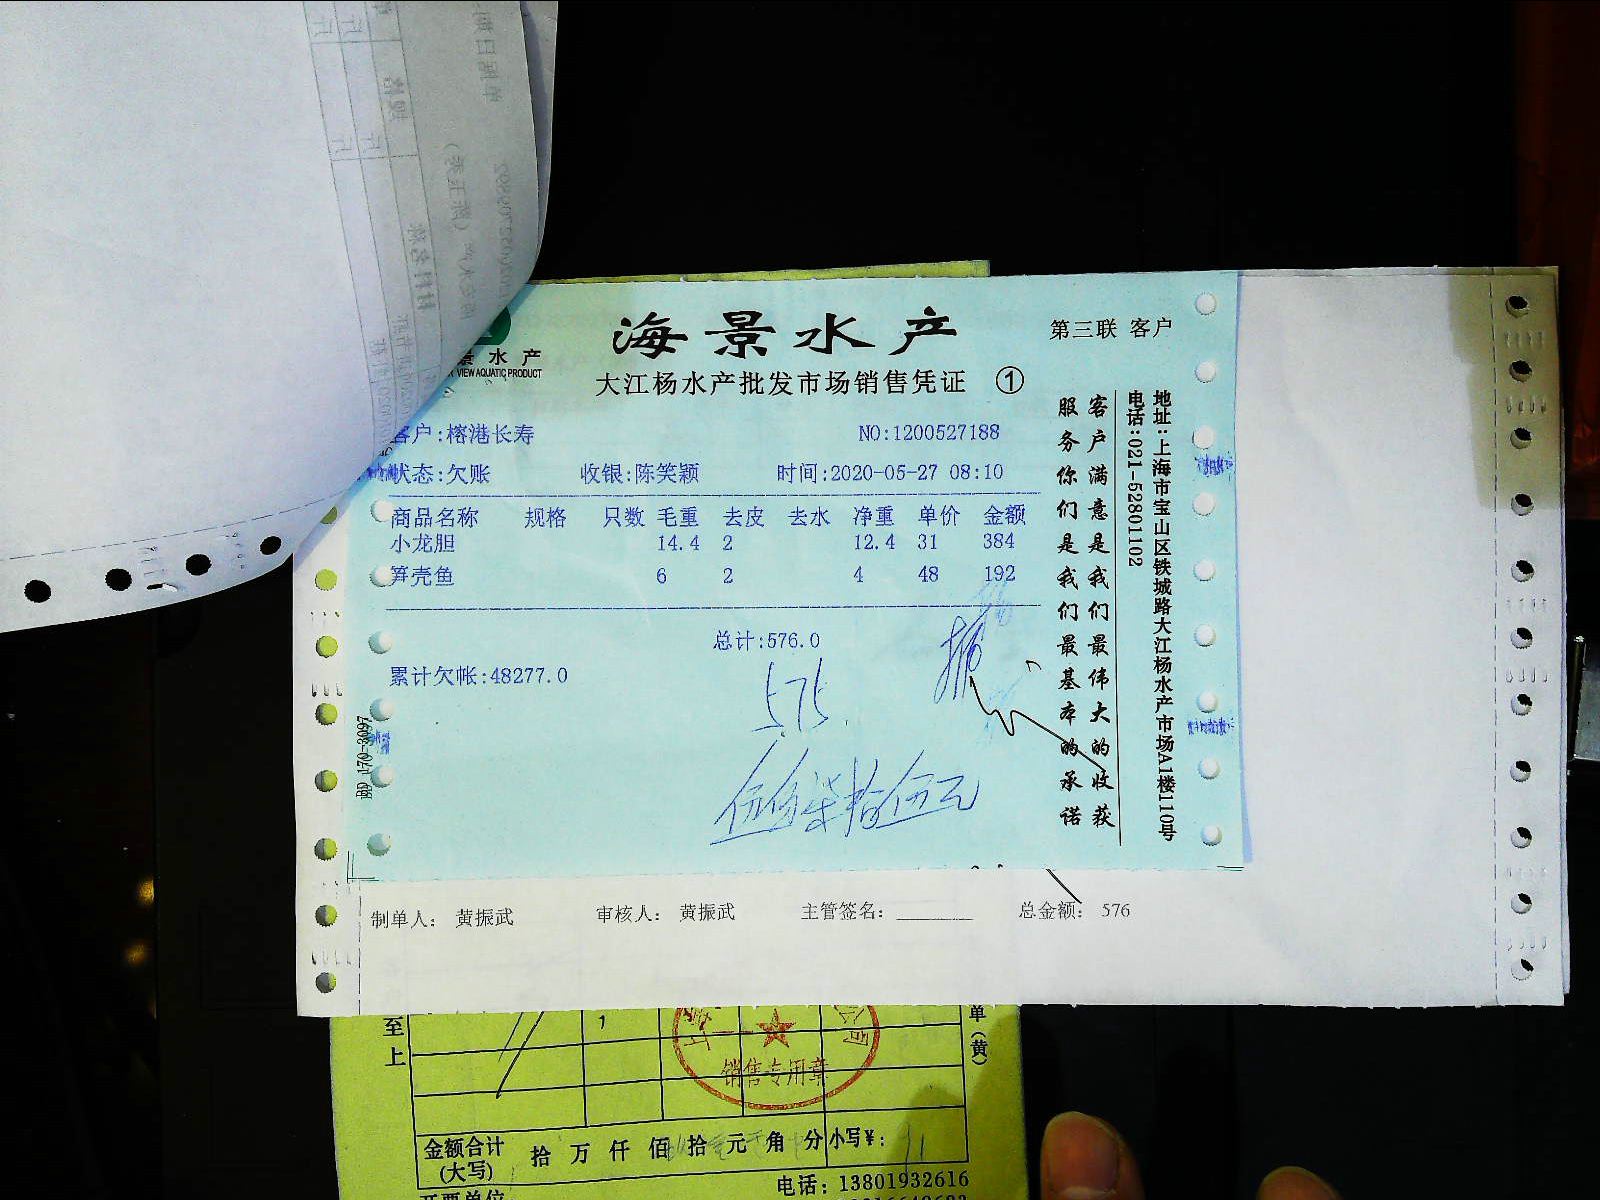 海景水产
第三联 客户
景水产
VIEW AQUATIC PRODUCT
大江杨水产批发市场销售凭证 ①
客户:榕港长寿 NO:1200527188
状态:欠账 收银:陈笑颖 时间:2020-05-27 08:10
商品名称 规格 只数 毛重 去皮 去水 净重 单价 金额
小龙胆 14.4 2 12.4 31 384
笋壳鱼 6 2 4 48 192
总计:576.0
累计欠帐:48277.0
575
伍佰柒拾伍元
客户满意是我们最伟大的收获
服务你们是我们最基本的承诺
地址:上海市宝山区铁城路大江杨水产市场A1楼110号
电话:021-52801102
制单人: 黄振武 审核人: 黄振武 主管签名: 总金额: 576
至上
单(黄)
销售专用章
金额合计(大写) 拾 万 仟 佰 拾 元 角 分 小写¥:
电话: 13801932616
开票单位